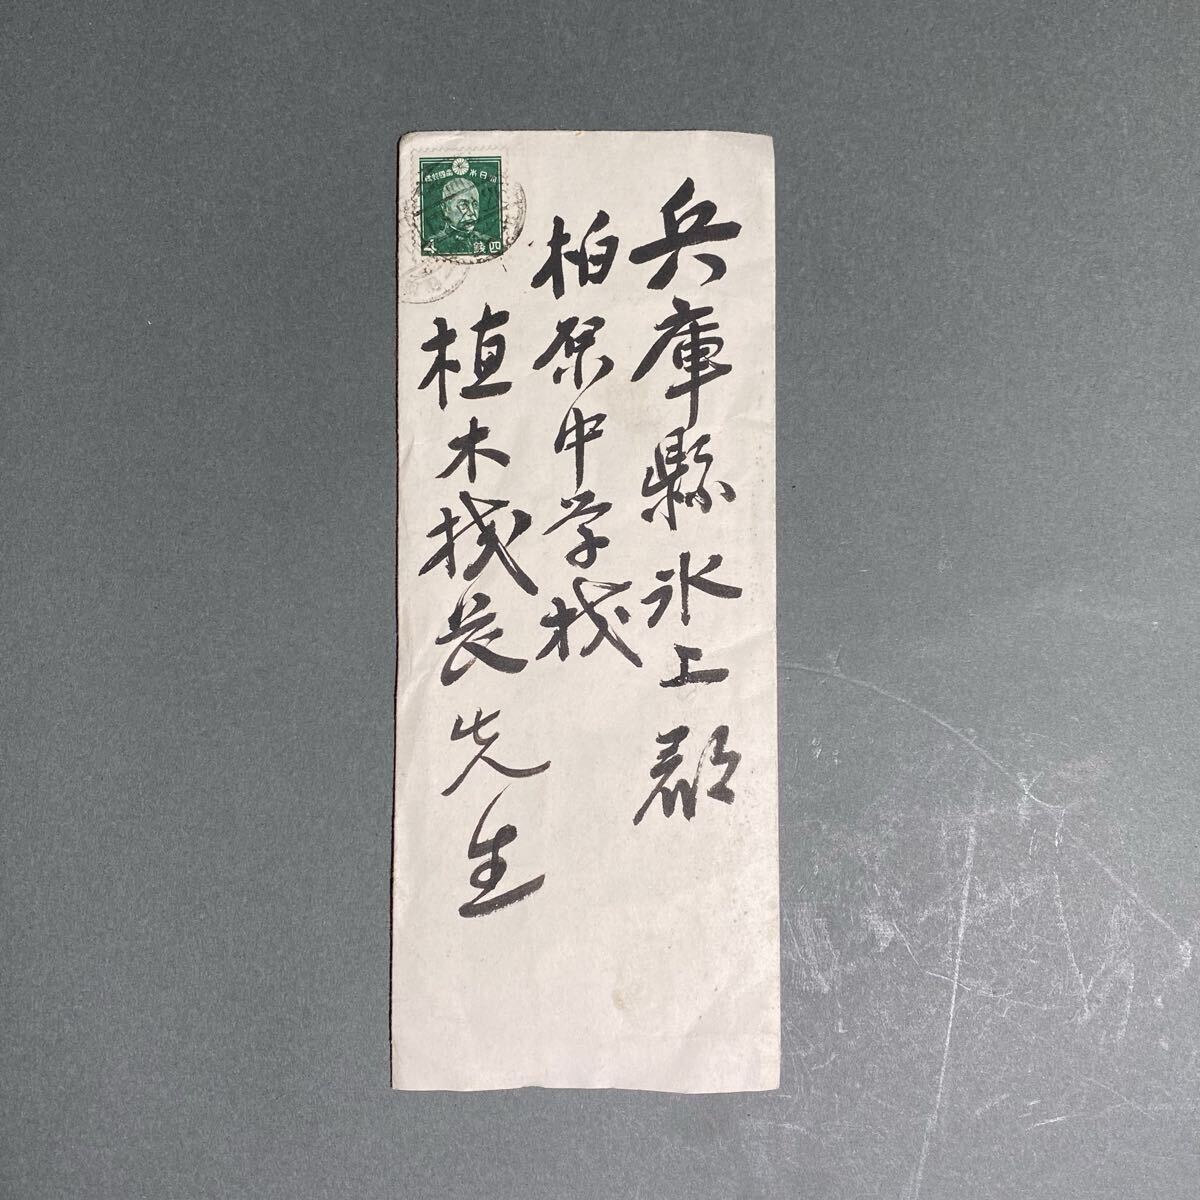 兵庫縣氷上郡
柏原中学校
植木校長先生
大日本帝國郵便
4
四錢